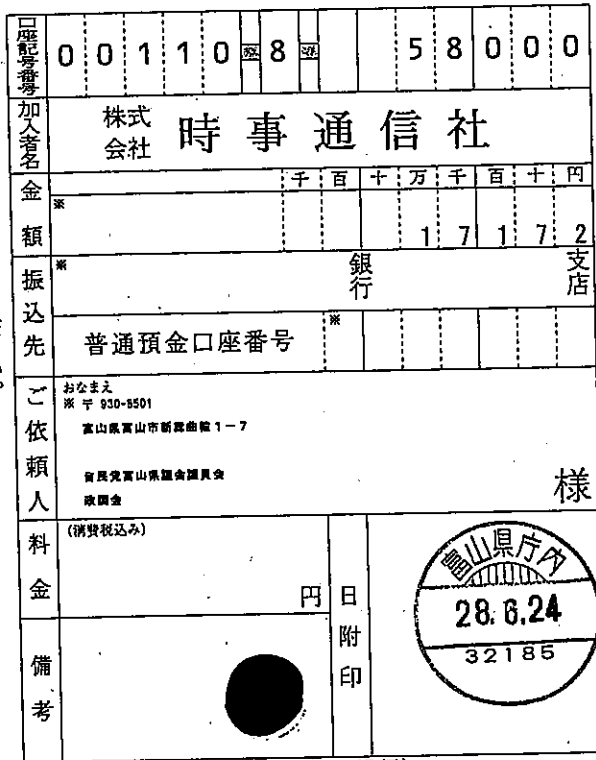 口座記号番号 00110 8 58000
加入者名 株式会社 時事通信社
金額 ※ 千 百 十 万 千 百 十 円
17172
振込先 ※ 銀行 支店
普通預金口座番号 ※
ご依頼人 おなまえ
※ 〒 930-8501
富山県富山市新総曲輪1-7
自民党富山県議会議員会
政調会
様
料金 (消費税込み)
円
備考
日附印
富山県庁内
28.6.24
32185